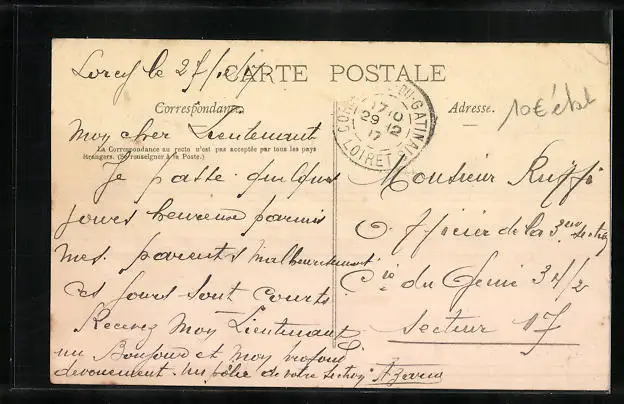 Lorcy le 27/12/17
CARTE POSTALE
Correspondance
Adresse.
10€
Mon cher Lieutenant
La Correspondance au recto n'est pas acceptée par tous les pays
étrangers. (Se renseigner à la Poste.)
Je passe quelques
jours heureuse parmis
mes parents malheureusement
ces jours sont courts
Recevez Mon Lieutenant
un Bonjour et mon profond
devouement. de votre section
DU-GATINAIS
17 10
29 12
17
LOIRET
Monsieur Ruffi
Officier de la 3eme section
Cie du Genie 34/2
secteur 17